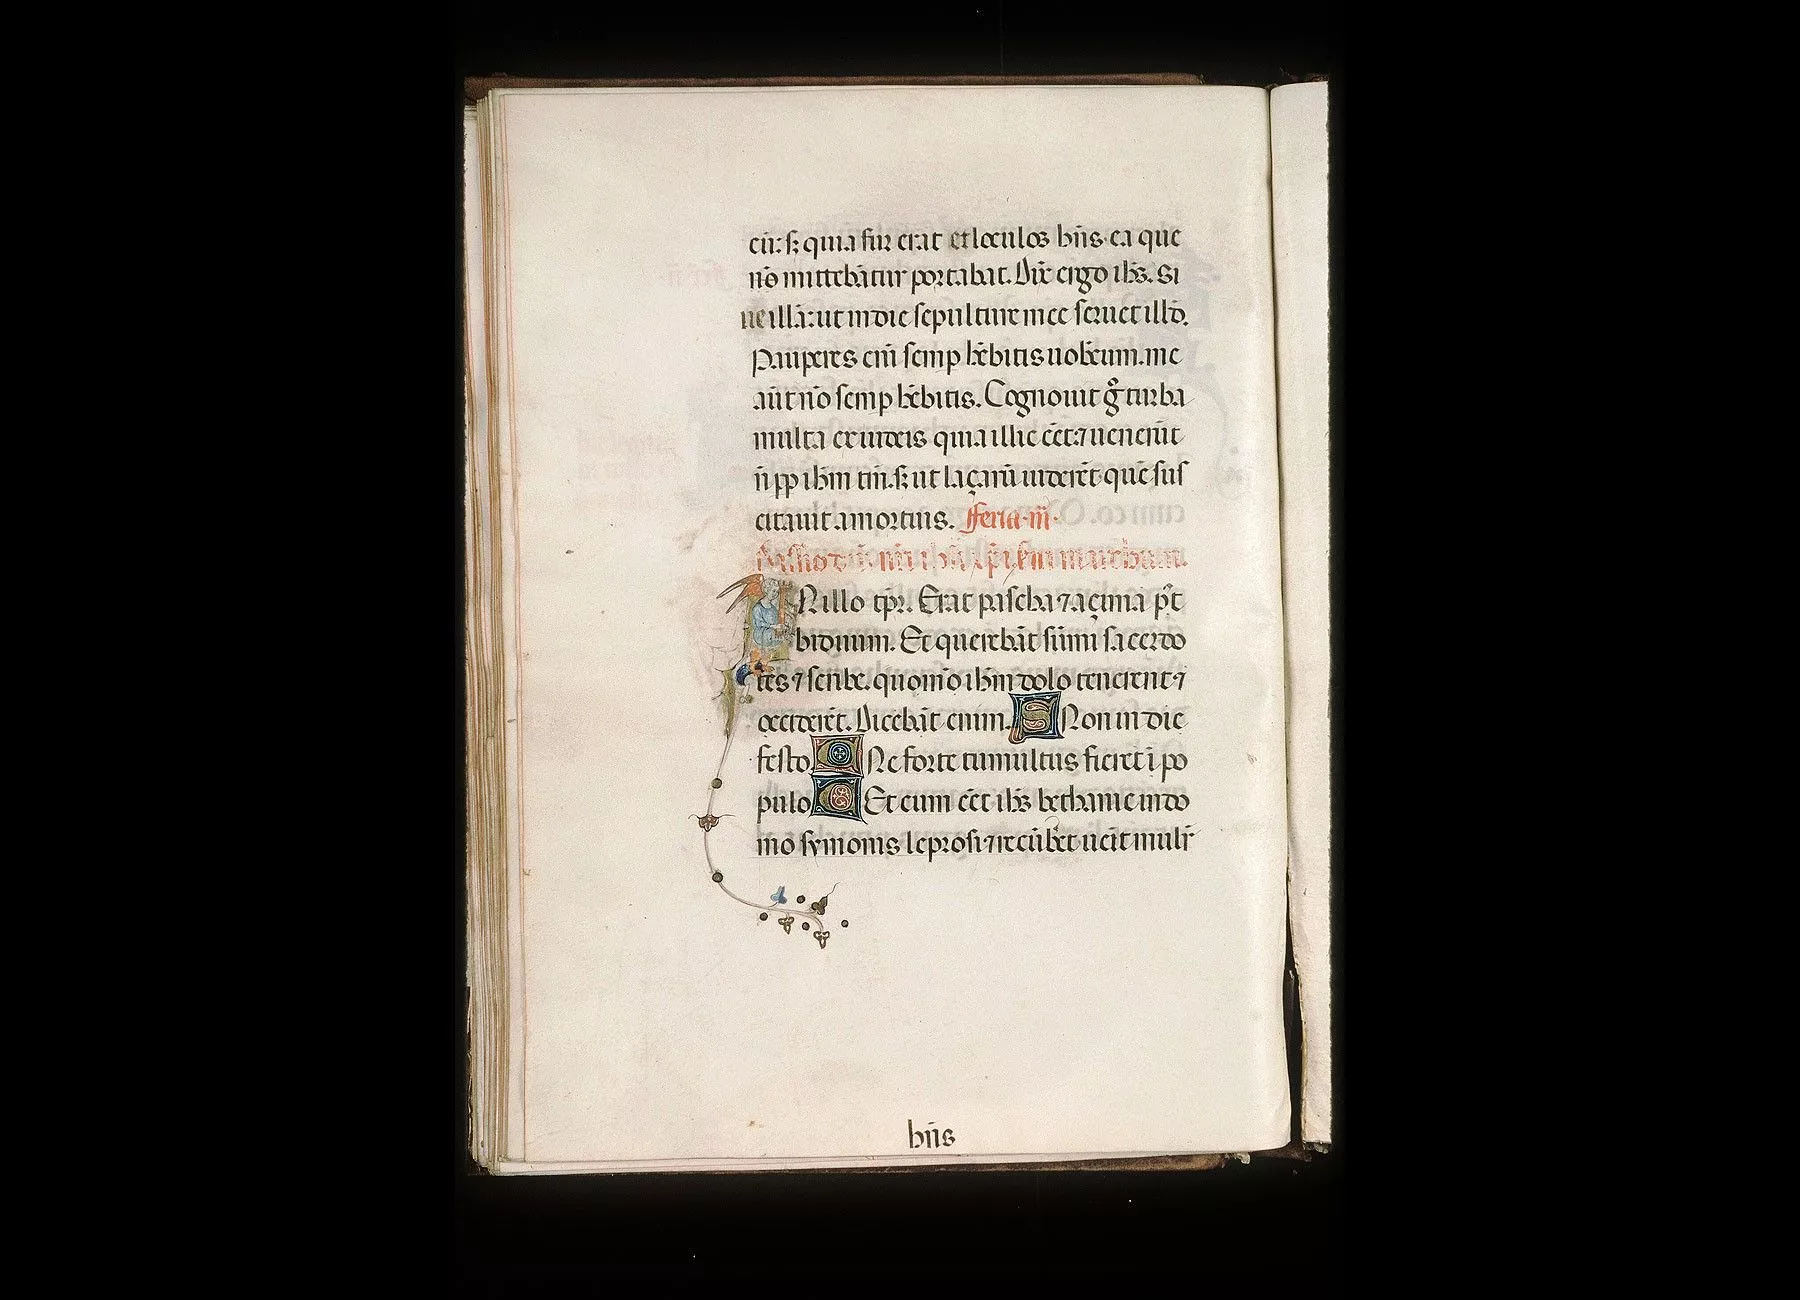 cū: s; quia fur erat et loculos hn̄s. ea que
nō mittebātur portabat. Dix̄ ergo ih̄s. Si
ne illā: ut in die sepulture mee seruet illd̄.
Pauperes eni semp hēbitis uobcum. me
aūt nō semp hēbitis. Cognouit g̊ turba
multa ex iudeis quia illic eēt: ⁊ uenerūt
n̄ pp ih̄m tm̄. s; ut laçarū uiderēt quē sus
citauit a mortuis. Feria·iii·
Passio dn̄i nr̄i ih̄u xp̄i scdm marchum.
N illo tp̄r. Erat pascha ⁊ açima pt
biduum. Et querebāt sūmi sacerdo
tes ⁊ scribe. quomō ih̄m dolo tenerent ⁊
occiderēt. Dicebāt enim. S Non in die
festo C Ne forte tumultus fieret ī po
pulo C Et cum eēt ih̄s bethanie in do
mo symonis leprosi ⁊ recūbet ueīt mulir
hn̄s